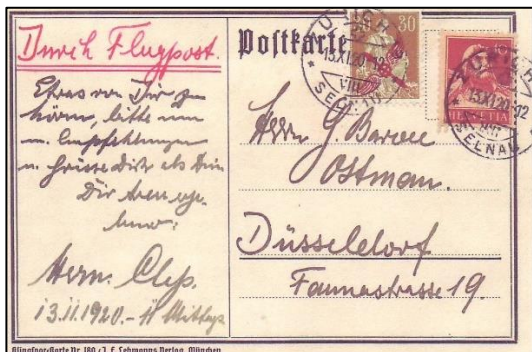 Durch Flugpost.
Postkarte
Etwas von Dir zu
hören, bitte nun
u. Empfehlungen
u. grüsse Dich als Dein
Dir
Herm.
13.11.1920.- 11 Mittags
30
ZÜRICH
13.XI.20.-12
VIII
SELNAU
HELVETIA
ZÜRICH
13.XI.20.-12
VIII
SELNAU
Herrn G
Ostman.
Düsseldorf
Faunastrasse 19.
Nr. 180 / J. F. Lehmanns Verlag, München